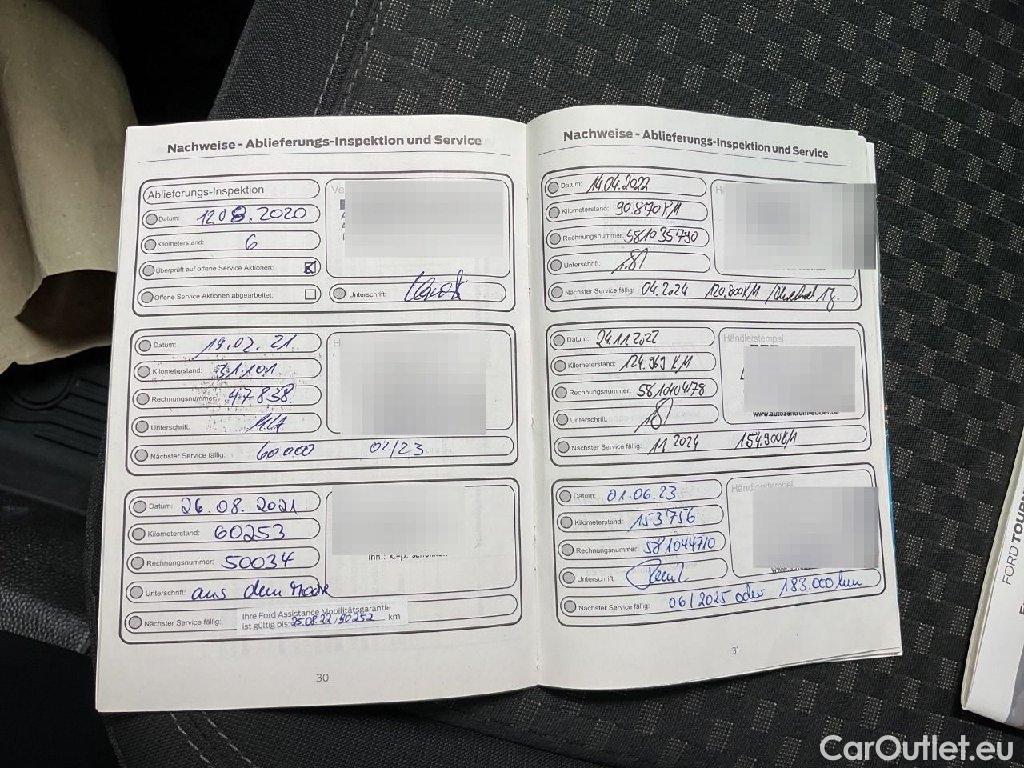 Nachweise - Ablieferungs-Inspektion und Service
Ablieferungs-Inspektion
Datum: 12.08.2020
Kilometerstand: 6
Überprüft auf offene Service Aktionen:
Offene Service Aktionen abgearbeitet:
Unterschrift:
Datum: 19.02.21
Kilometerstand:
Rechnungsnummer: 47838
Unterschrift:
Nächster Service fällig: 60000 02/23
Datum: 26.08.2021
Kilometerstand: 60253
Rechnungsnummer: 50034
Unterschrift: aus dem
Nächster Service fällig:
Ihre Ford Assistance Mobilitätsgarantie
ist gültig bis: 25.08.22/90252 km
30
Nachweise - Ablieferungs-Inspektion und Service
Datum: 14.04.2022
Kilometerstand: 90.870 KM
Rechnungsnummer: 581035790
Unterschrift:
Nächster Service fällig: 04.2024 120.800KM
Datum: 24.11.2022
Händlerstempel
Kilometerstand: 124.969 KM
Rechnungsnummer: 581040478
Unterschrift:
Nächster Service fällig: 11.2024 154.900KM
Datum: 01.06.23
Händlerstempel
Kilometerstand: 153756
Rechnungsnummer: 581044710
Unterschrift:
Nächster Service fällig: 06/2025 oder 183.000 km
3
FORD TOUR
CarOutlet.eu